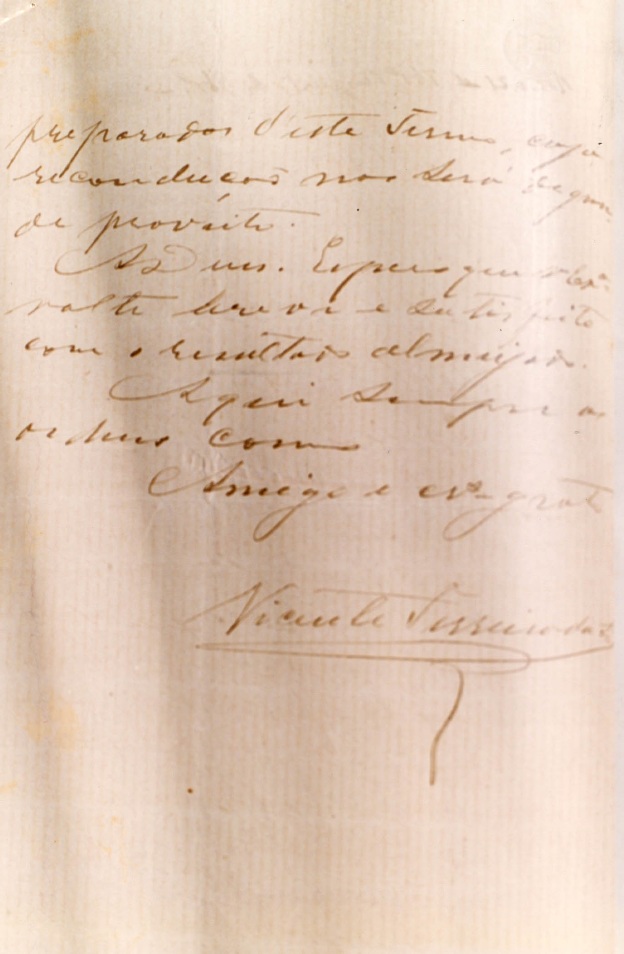 preparador d'este Termo, cuja
reconducção nos será de gran
de proveito.
A Deus. Espero que V. Exª
volte breve e satisfeito
com o resultado almejado.
Aqui sempre as
ordens como
Amigo e crº grato
Vicente Ferreira da S.